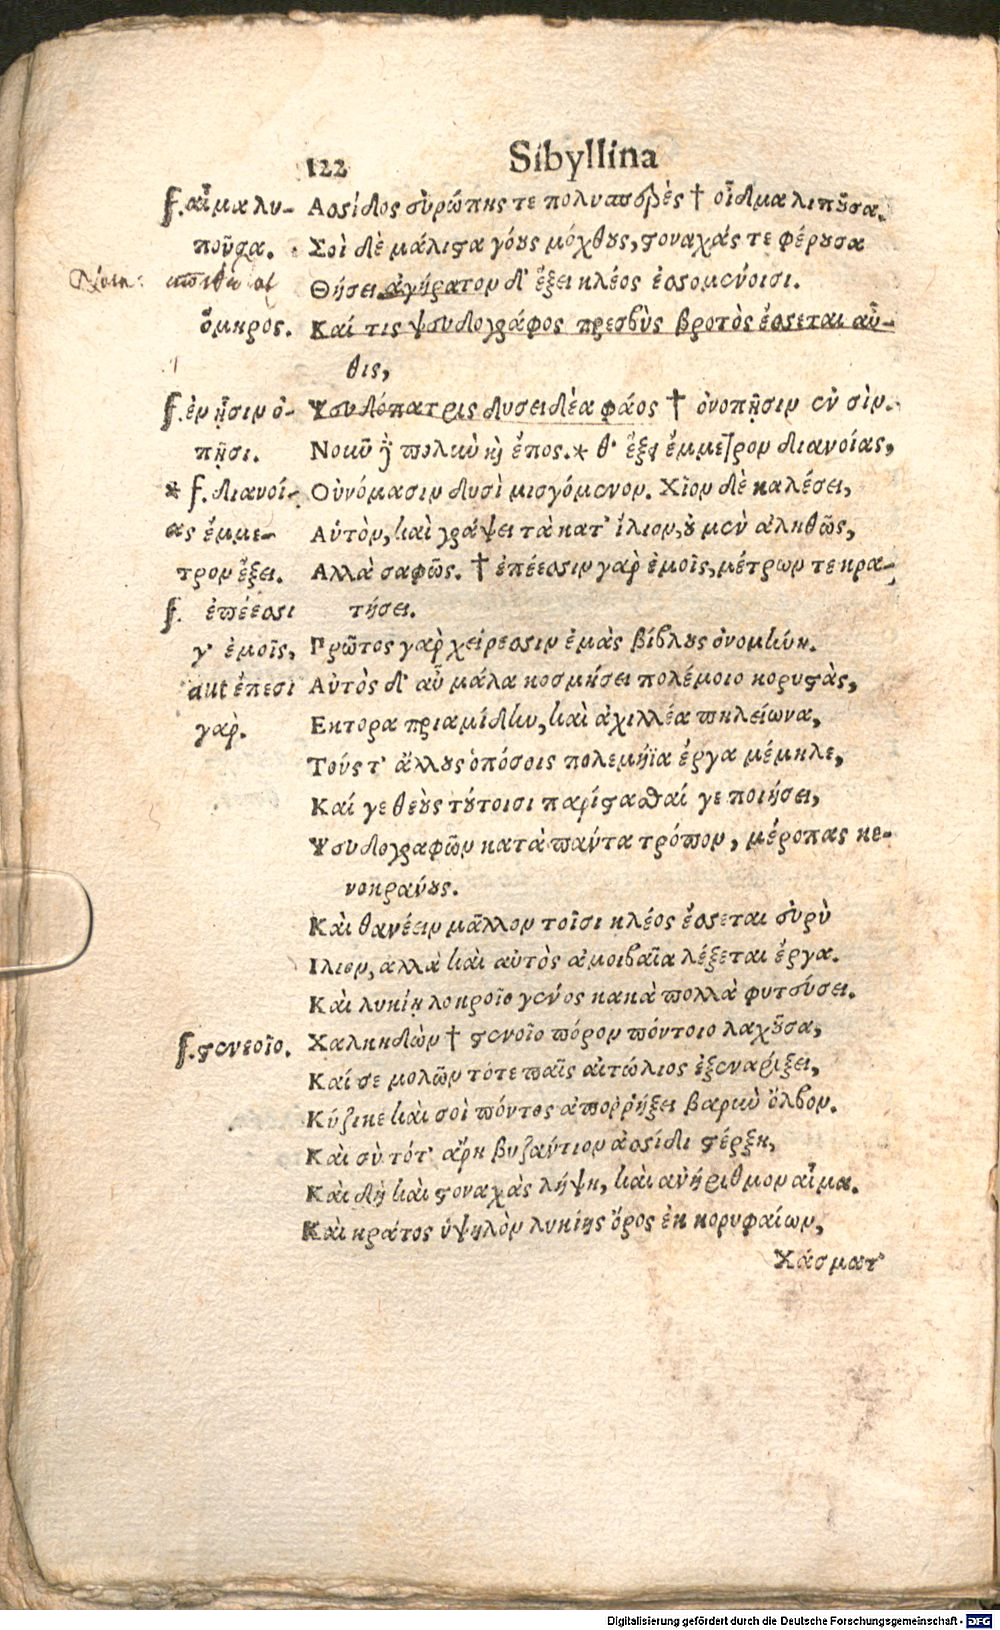 122 Sibyllina
f. αἷμα λυ- Ασίδος εὐρώπης τε πολυσπερὲς † οἶδμα λιποῦσα.
ποῦσα. Σοὶ δὲ μάλιστα γόους μόχθους, στοναχάς τε φέρουσα
Θήσει. ἀγήρατον δ' ἕξει κλέος ἐσσομένοισι.
ὅμηρος. Καί τις ψευδογράφος πρεσβὺς βροτὸς ἔσσεται αὖ-
θις,
f. ἐν ᾗσιν ὀ- Ψευδόπατρις δυσειδέα φάος † ὀνοπῇσιν ἐν σὶν.
πῇσι. Νοῦν ἢ πολὺν καὶ ἔπος. * θ' ἕξει ἔμμετρον διανοίας,
* f. διανοί- Οὐνόμασιν δυσὶ μισγόμενον. Χῖον δὲ καλέσει,
ας ἔμμε- Αὑτὸν, καὶ γράψει τὰ κατ' ἴλιον, οὐ μὲν ἀληθῶς,
τρον ἕξει. Αλλὰ σαφῶς. † ἐπέεσσιν γὰρ ἐμοῖς, μέτρων τε κρα-
f. ἐπέεσσι τήσει.
γ' ἐμοῖς, Πρῶτος γὰρ χείρεσσιν ἐμὰς βίβλους ὀνομήνῃ.
aut ἔπεσι Αὐτὸς δ' αὖ μάλα κοσμήσει πολέμοιο κορυστὰς,
γὰρ. Εκτορα πριαμίδην, καὶ ἀχιλλέα πηλείωνα,
Τούς τ' ἄλλους ὁπόσοις πολεμήϊα ἔργα μέμηλε,
Καί γε θεοὺς τούτοισι παρίστασθαί γε ποιήσει,
Ψευδογραφῶν κατὰ πάντα τρόπον, μέροπας κε-
νοκράνους.
Καὶ θανέειν μᾶλλον τοῖσι κλέος ἔσσεται εὐρὺ
Ιλιον, ἀλλὰ καὶ αὐτὸς ἀμοιβαῖα λέξεται ἔργα.
Καὶ λυκίῃ λοκροῖο γένος κακὰ πολλὰ φυτεύσει.
f. στενεοῖο. Χαλκηδὼν † στενοῖο πόρον πόντοιο λαχοῦσα,
Καί σε μολῶν τότε παῖς αἰτώλιος ἐξεναρίξει,
Κύζικε καὶ σοὶ πόντος ἀπορρήξει βαρὺν ὄλβον.
Καὶ σὺ τότ' ἄρη βυζάντιον ἀσσίδι στέρξῃ,
Καὶ δὴ καὶ στοναχὰς λήψῃ, καὶ ἀνήριθμον αἷμα.
Καὶ κράτος ὑψηλὸν λυκίης ὄρος ἐκ κορυφαίων,
Χάσματ'
Digitalisierung gefördert durch die Deutsche Forschungsgemeinschaft - DFG